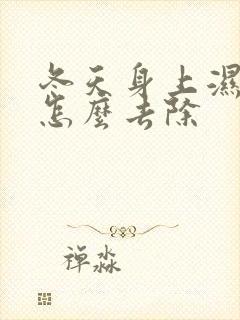 冬天身上濕
怎麼去除
禅淼